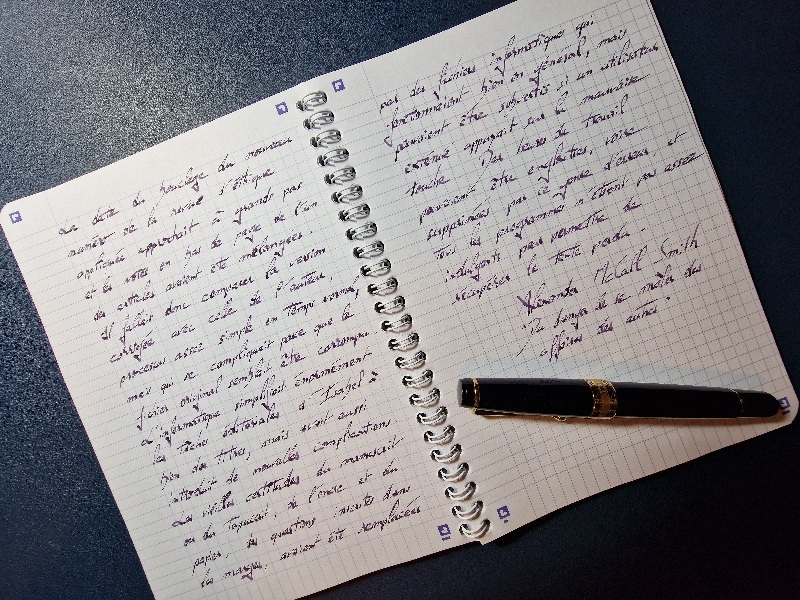 La date du bouclage du nouveau
numéro de la revue d'éthique
appliquée approchait à grands pas
et les notes en bas de page de l'un
des articles avaient été mélangées.
Il fallait donc comparer la version
corrigée avec celle de l'auteur,
processus assez simple en temps normal,
mais qui se compliquait parce que le
fichier original semblait être corrompu.
L'informatique simplifiait énormément
les tâches éditoriales d'Isabel à
bien des titres, mais avait aussi
introduit de nouvelles complications.
Les vieilles certitudes du manuscrit
ou du tapuscrit, de l'encre et du
papier, des questions inscrites dans
les marges, avaient été remplacées
par des fichiers informatiques qui
fonctionnaient bien en général, mais
pouvaient être subvertis si un utilisateur
exténué appuyait sur la mauvaise
touche. Des heures de travail
pouvaient être englouties, voire
supprimées par ce genre d'erreur, et
tous les programmes n'étaient pas assez
indulgents pour permettre de
récupérer le texte perdu.
Alexander McCall Smith
Du danger de se mêler des
affaires des autres.